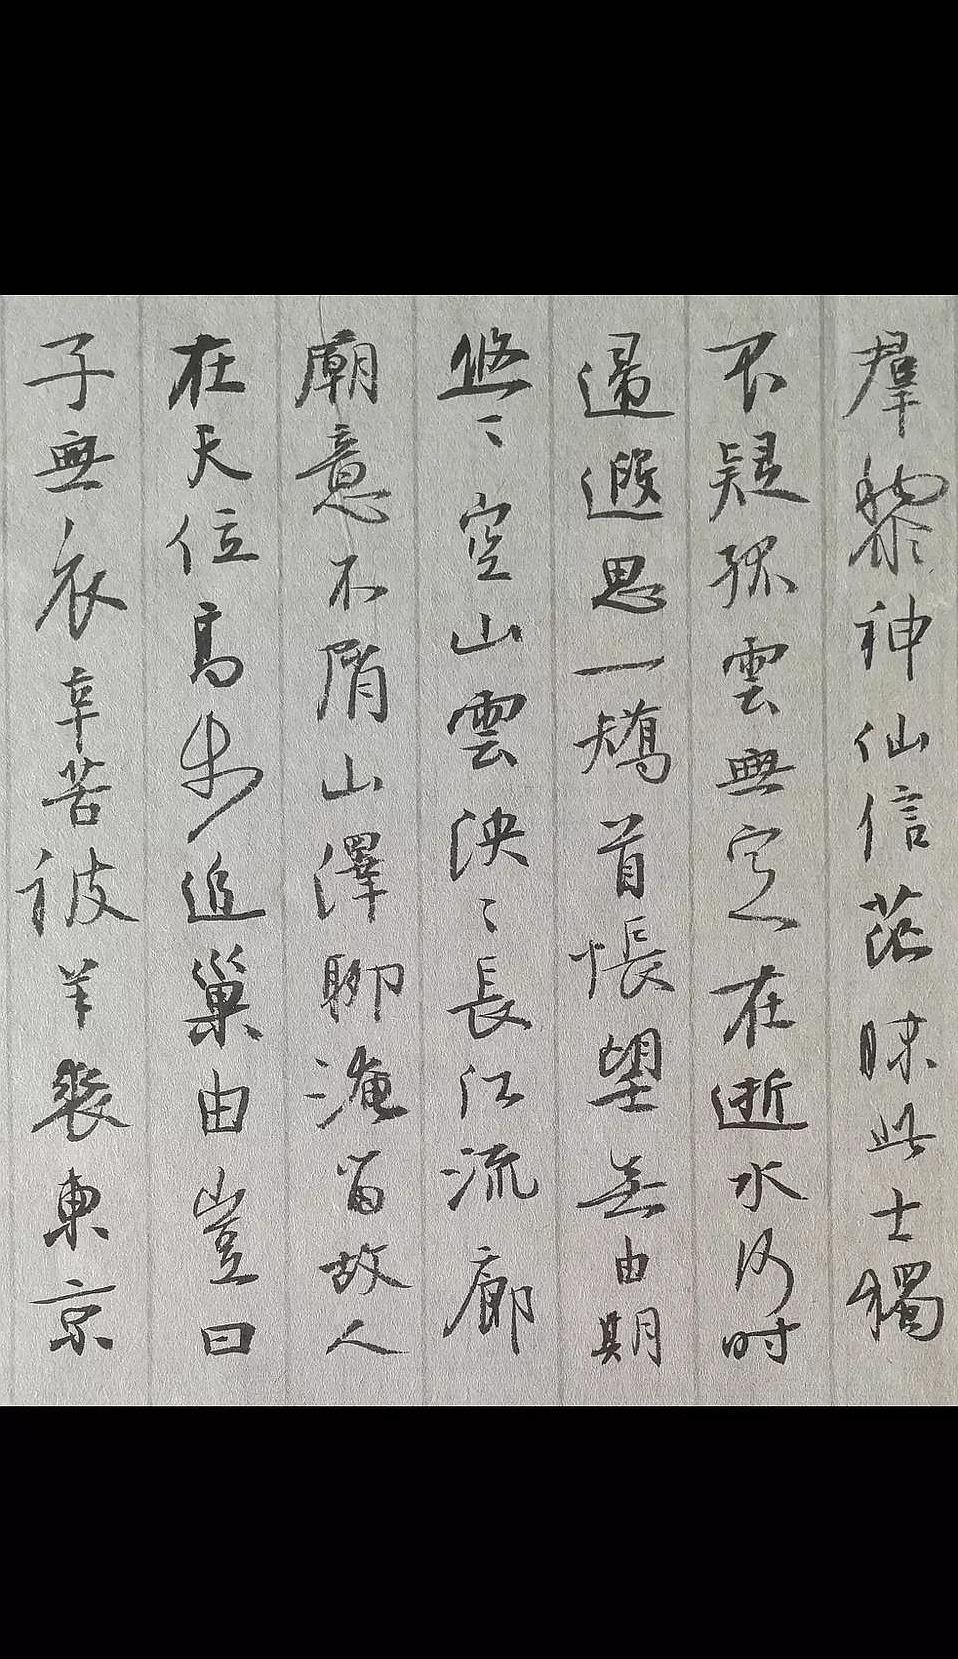 羣黎神仙信茫昧此士獨
不疑孤雲無定在逝水何时
還遐思一矯首悵望無由期
悠〻空山雲泱〻長江流廊
廟意不屑山澤聊淹留故人
在天位高步追巢由豈曰
子無衣辛苦被羊裘東京